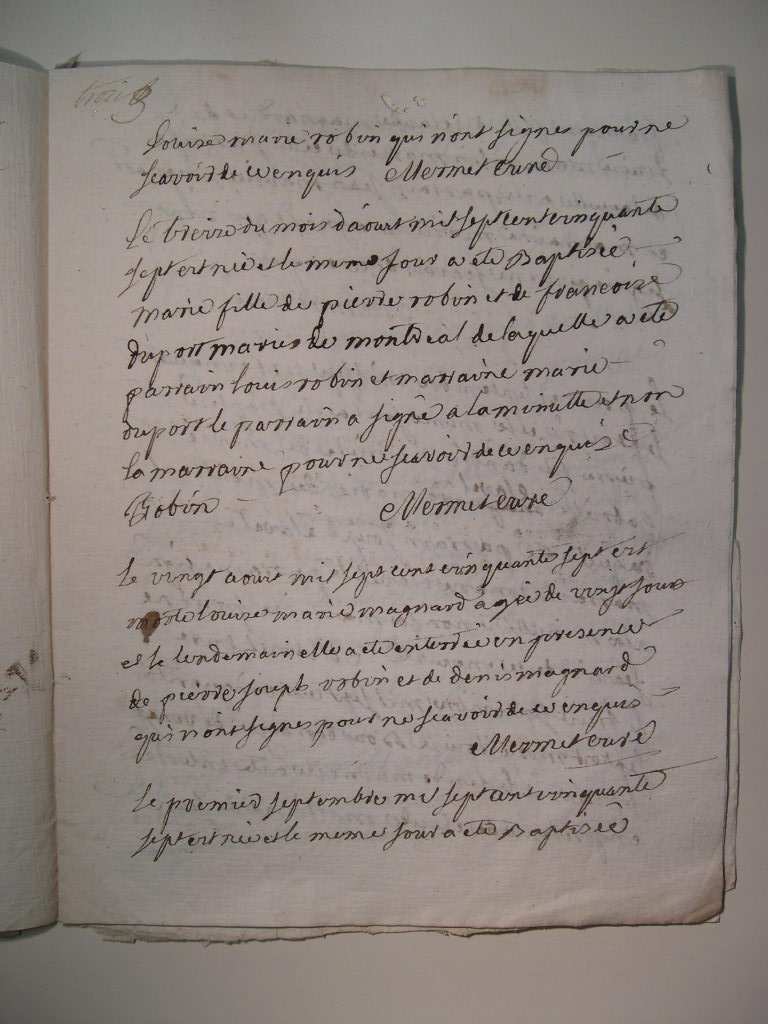 trois
Louise marie robin qui n'ont signés pour ne
scavoir de ce enquis Mermet curé
Le treize du mois d'aourt mil sept cent cinquante
sept est née et le meme jour a eté Baptisée
marie fille de pierre robin et de francoise
duport mariés de montreal de laquelle a eté
parrain louis robin et marraine marie
duport le parrain a signé a la minutte et non
la marraine pour ne scavoir de ce enquis
Robin Mermet curé
le vingt aourt mil sept cent cinquante sept est
morte louise marie magnard agée de vingt jours
et le lendemain elle a eté enterrée en presence
de pierre joseph robin et de denis magnard
qui n'ont signés pour ne scavoir de ce enquis
Mermet curé
le premier septembre mil sept cent cinquante
sept est née et le meme jour a eté Baptisée